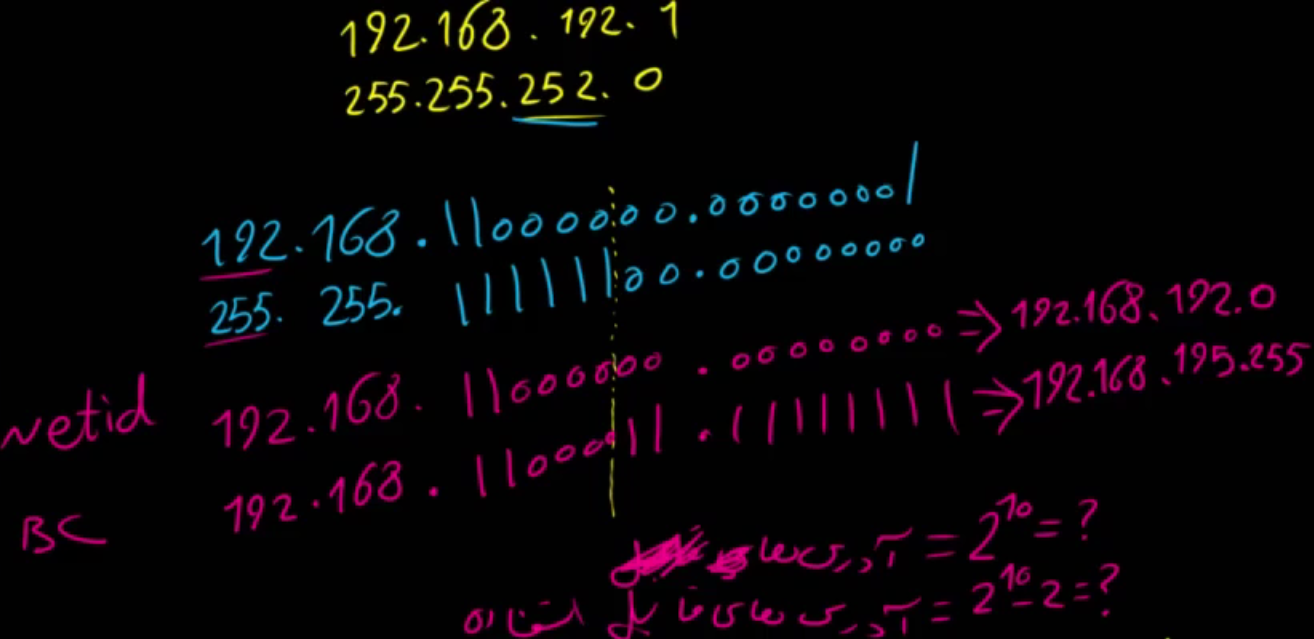 192.168.192.1
255.255.252.0
192.168.11000000.00000001
255.255.11111100.00000000
netid 192.168.11000000.00000000 => 192.168.192.0
BC 192.168.11000011.11111111 => 192.168.195.255
آدرس های = 2^10 = ?
آدرس های قابل استفاده = 2^10 - 2 = ?